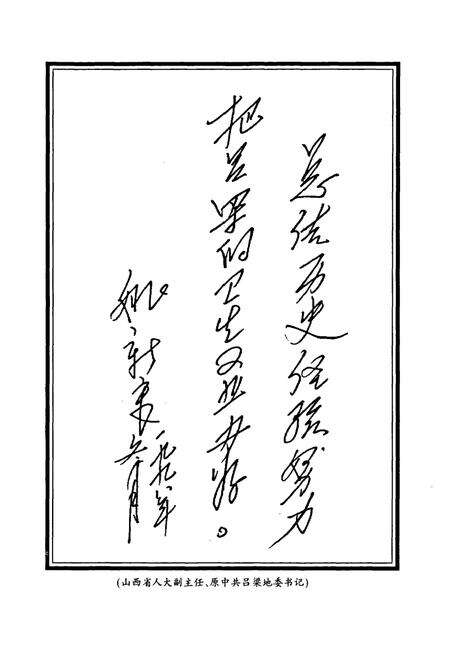 总结历史经验努力
把吕梁的卫生事业办好。
姚新章
一九九八年
六月
(山西省人大副主任、原中共吕梁地委书记)